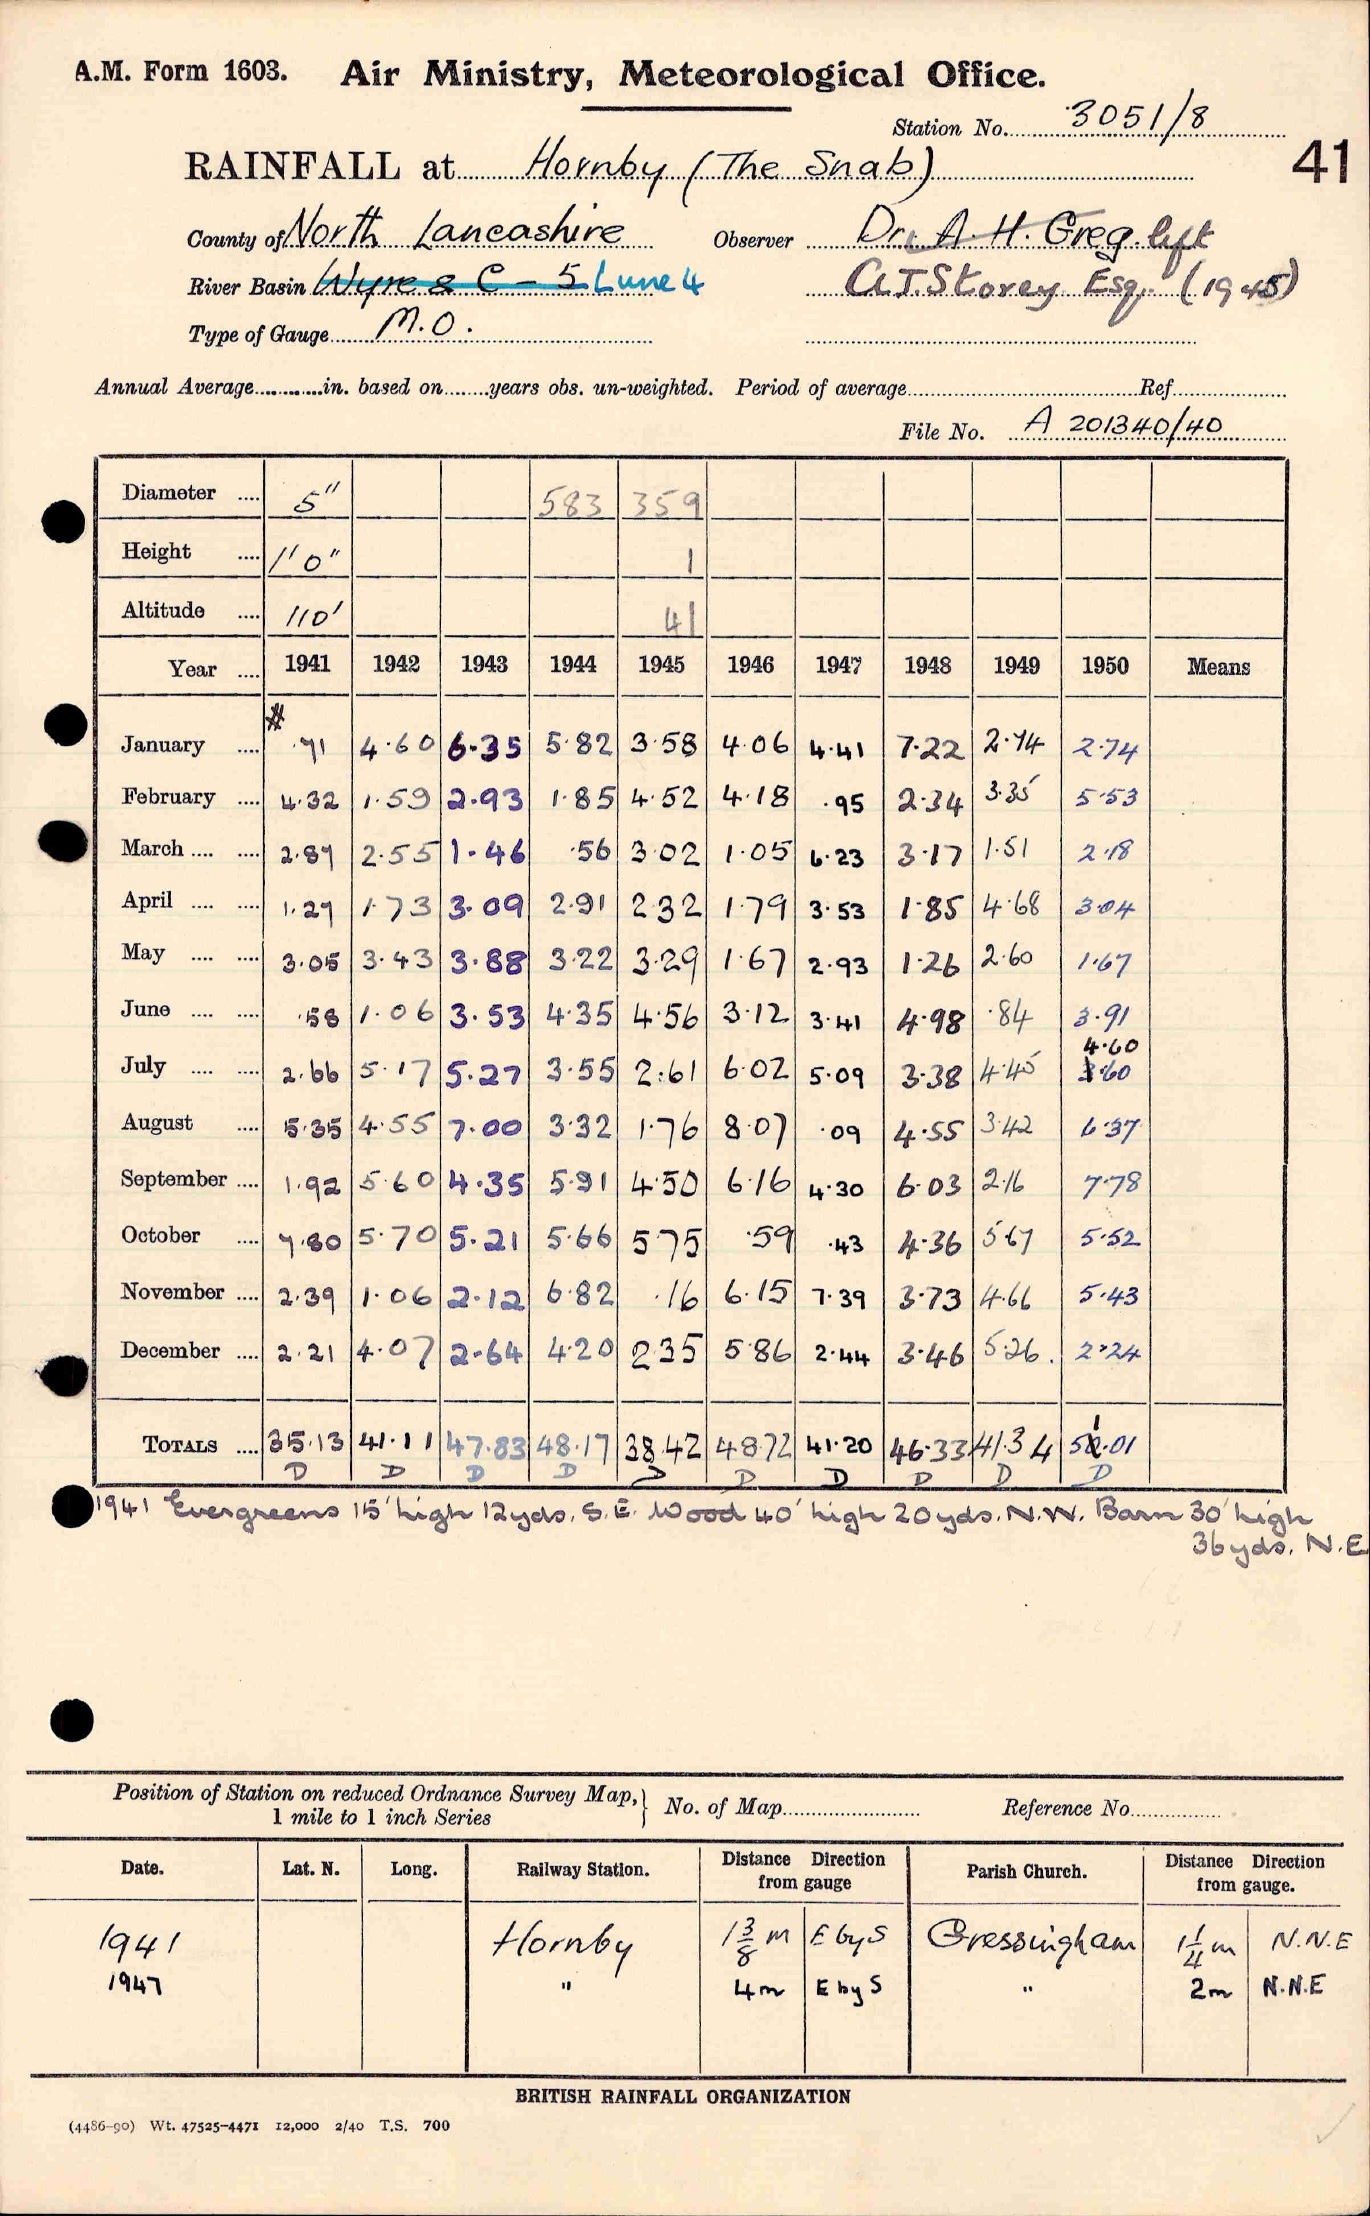 A.M. Form 1603. Air Ministry, Meteorological Office.
Station No. 3051/8
41
RAINFALL at Hornby (The Snab)
County of North Lancashire Observer Dr. A. H. Greg. left
River Basin Wyre & C - 5 Lune 4 A.T. Storey Esq. (1945)
Type of Gauge M.O.
Annual Average in. based on years obs. un-weighted. Period of average Ref
File No. A 201340/40
Diameter .... 5" 583 359
Height .... 1'0" 1
Altitude .... 110' 41
Year .... 1941 1942 1943 1944 1945 1946 1947 1948 1949 1950 Means
#
January .... .71 4.60 6.35 5.82 3.58 4.06 4.41 7.22 2.74 2.74
February .... 4.32 1.59 2.93 1.85 4.52 4.18 .95 2.34 3.35 5.53
March .... .... 2.87 2.55 1.46 .56 3.02 1.05 6.23 3.17 1.51 2.18
April .... .... 1.27 1.73 3.09 2.91 2.32 1.79 3.53 1.85 4.68 3.04
May .... .... 3.05 3.43 3.88 3.22 3.29 1.67 2.93 1.26 2.60 1.67
June .... .... .58 1.06 3.53 4.35 4.56 3.12 3.41 4.98 .84 3.91
4.60
July .... .... 2.66 5.17 5.27 3.55 2.61 6.02 5.09 3.38 4.45 3.60
August .... 5.35 4.55 7.00 3.32 1.76 8.07 .09 4.55 3.42 6.37
September .... 1.92 5.60 4.35 5.91 4.50 6.16 4.30 6.03 2.16 7.78
October .... 7.80 5.70 5.21 5.66 5.75 .59 .43 4.36 5.67 5.52
November .... 2.39 1.06 2.12 6.82 .16 6.15 7.39 3.73 4.66 5.43
December .... 2.21 4.07 2.64 4.20 2.35 5.86 2.44 3.46 5.26. 2.24
TOTALS .... 35.13 41.11 47.83 48.17 38.42 48.72 41.20 46.33 41.34 51.01
D D D D D D D D D D
1941 Evergreens 15' high 12yds. S.E. Wood 40' high 20yds. N.W. Barn 30' high
36yds. N.E
Position of Station on reduced Ordnance Survey Map,} No. of Map Reference No
1 mile to 1 inch Series
Date. Lat. N. Long. Railway Station. Distance from gauge Direction Parish Church. Distance from gauge. Direction
1941 Hornby 1 3/8 m E by S Gressingham 1 1/4 m N.N.E
1947 " 4m E by S " 2m N.N.E
BRITISH RAINFALL ORGANIZATION
(4486-90) Wt. 47525-4471 12,000 2/40 T.S. 700